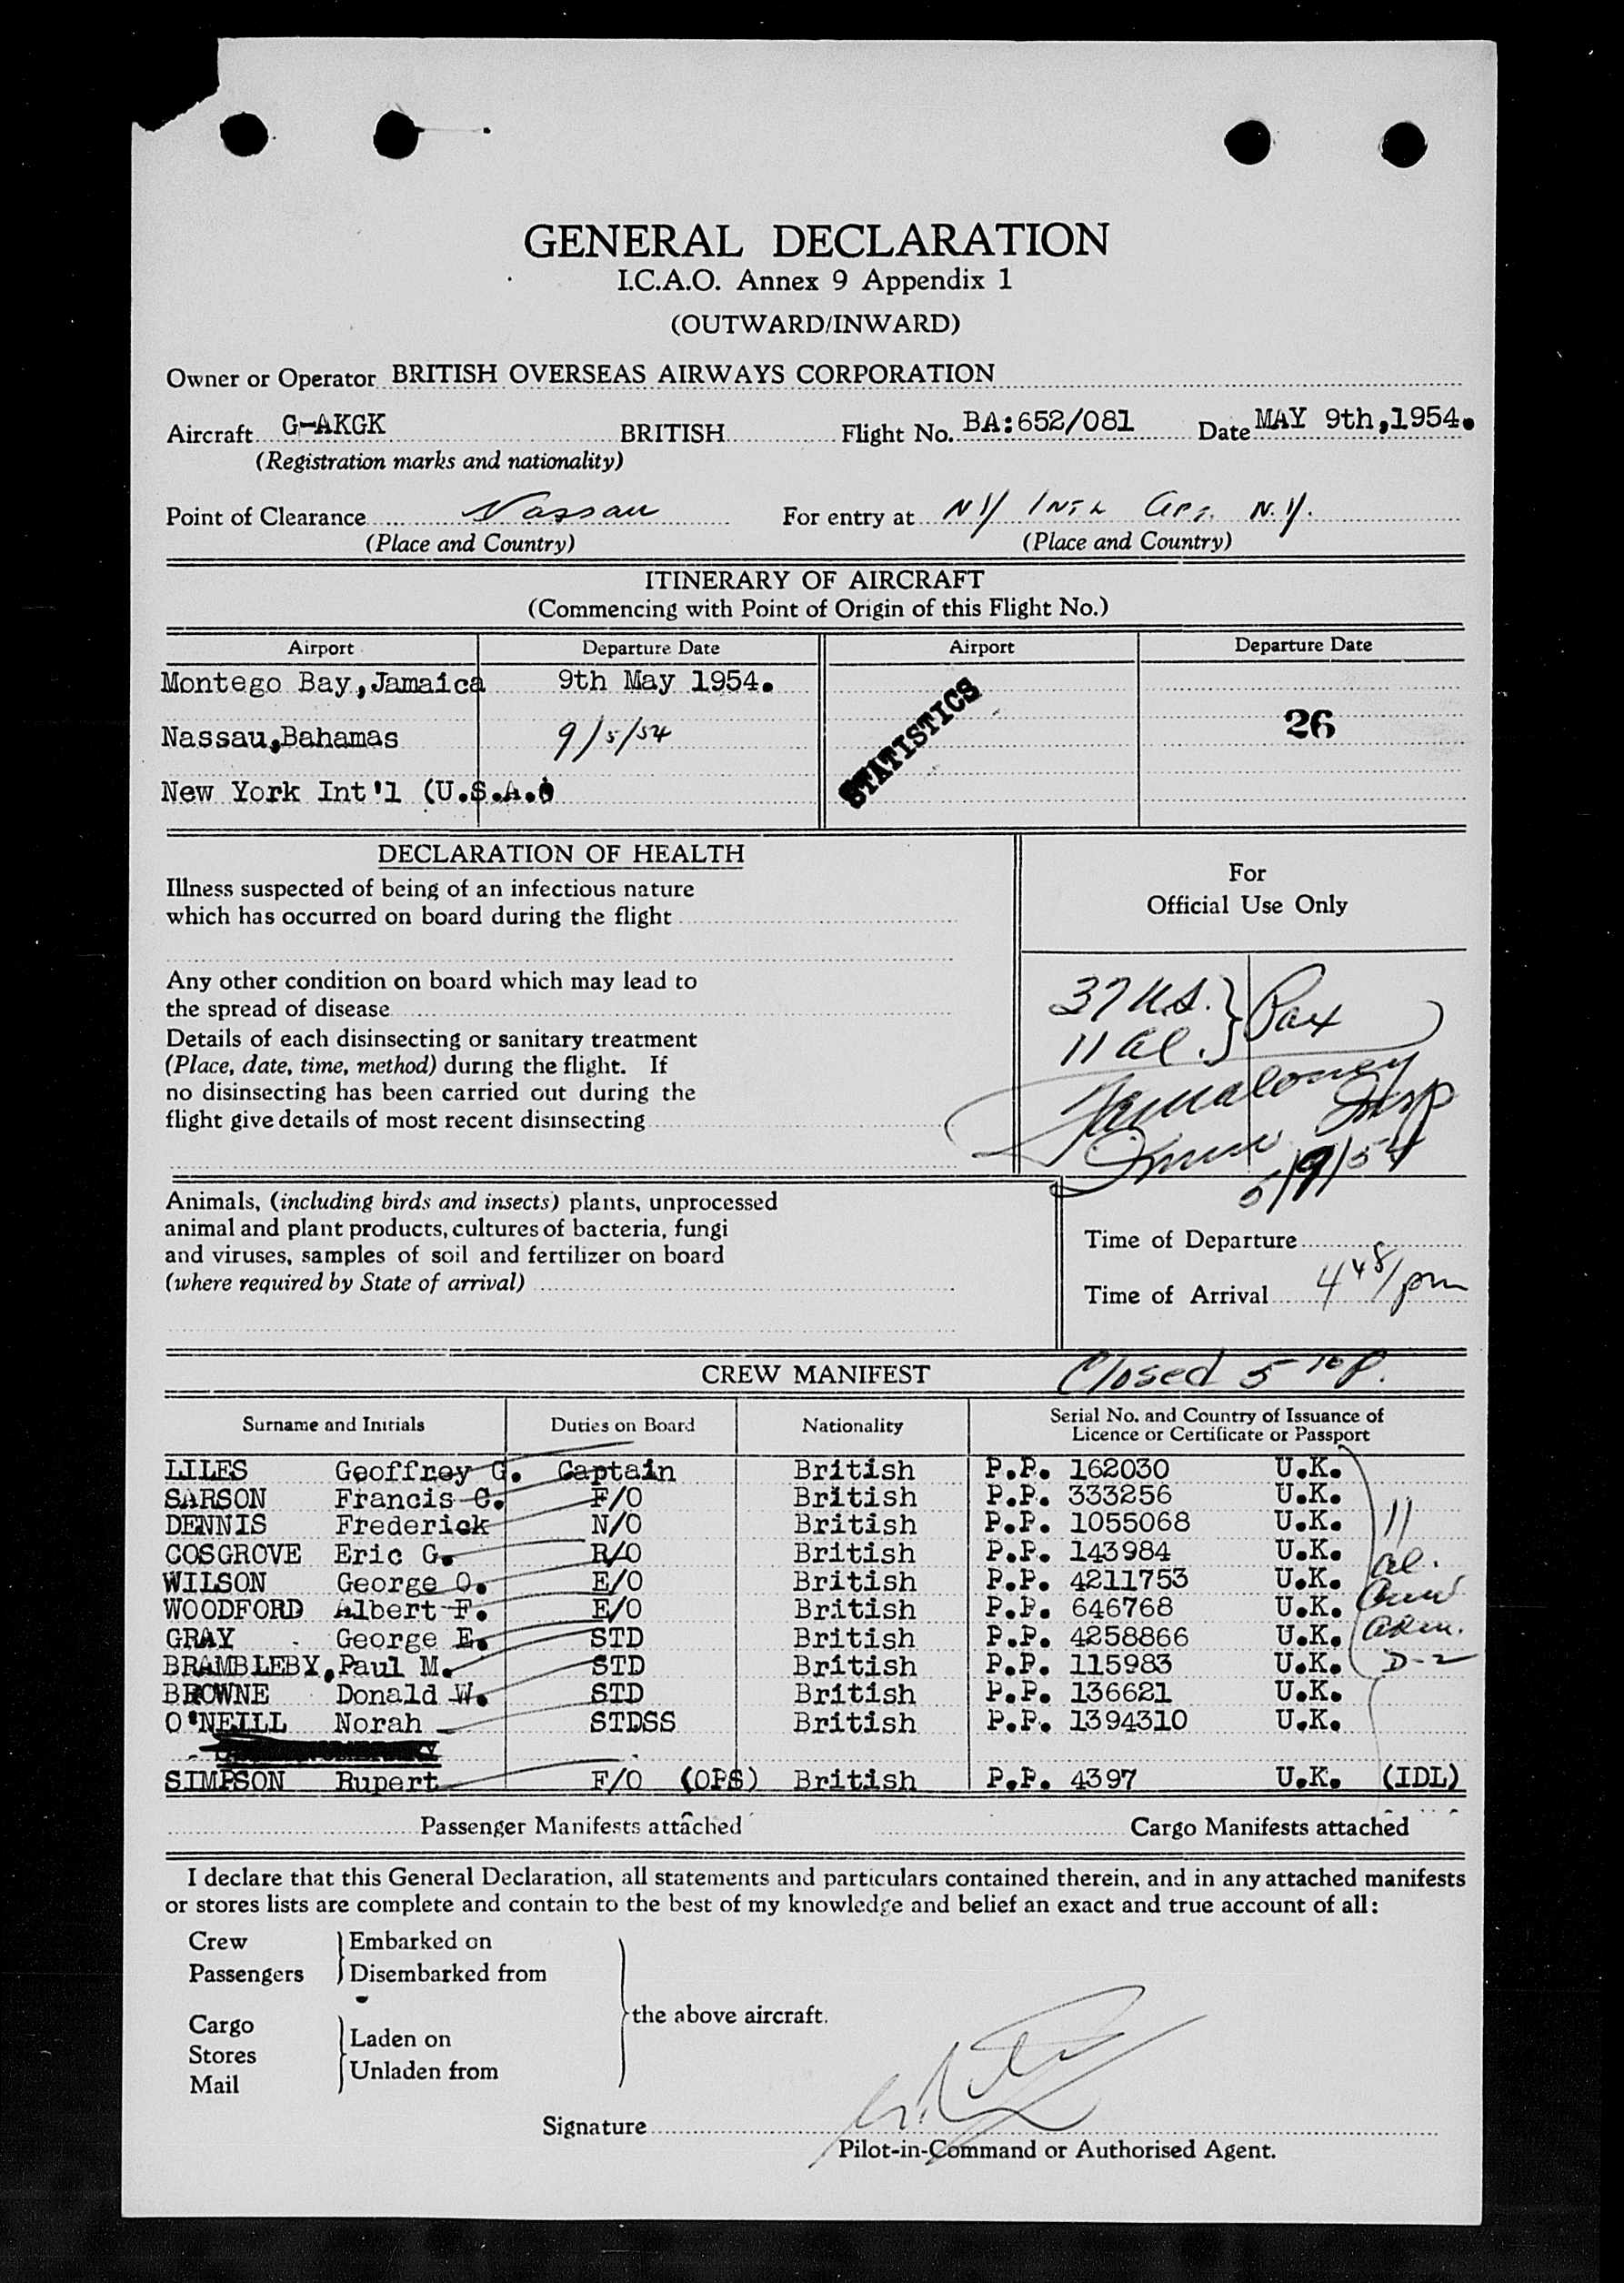 GENERAL DECLARATION
I.C.A.O. Annex 9 Appendix 1
(OUTWARD/INWARD)
Owner or Operator BRITISH OVERSEAS AIRWAYS CORPORATION
Aircraft G-AKGK BRITISH Flight No. BA:652/081 Date MAY 9th,1954.
(Registration marks and nationality)
Point of Clearance Nassau For entry at NY INTL APT. N.Y.
(Place and Country) (Place and Country)
ITINERARY OF AIRCRAFT
(Commencing with Point of Origin of this Flight No.)
Airport Departure Date Airport Departure Date
Montego Bay,Jamaica 9th May 1954.
STATISTICS
26
Nassau,Bahamas 9/5/54
New York Int'l (U.S.A.)
DECLARATION OF HEALTH
Illness suspected of being of an infectious nature
which has occurred on board during the flight
Any other condition on board which may lead to
the spread of disease
Details of each disinsecting or sanitary treatment
(Place, date, time, method) during the flight. If
no disinsecting has been carried out during the
flight give details of most recent disinsecting
For
Official Use Only
37 U.S. } Pax
11 al.
Insp
5/9/54
Animals, (including birds and insects) plants, unprocessed
animal and plant products, cultures of bacteria, fungi
and viruses, samples of soil and fertilizer on board
(where required by State of arrival)
Time of Departure
Time of Arrival 4 48/pm
CREW MANIFEST Closed 5 10 P.
Surname and Initials Duties on Board Nationality Serial No. and Country of Issuance of
Licence or Certificate or Passport
LILES Geoffrey G. Captain British P.P. 162030 U.K.
SARSON Francis C. F/O British P.P. 333256 U.K.
DENNIS Frederick N/O British P.P. 1055068 U.K.
COSGROVE Eric G. R/O British P.P. 143984 U.K.
WILSON George O. E/O British P.P. 4211753 U.K.
WOODFORD Albert F. E/O British P.P. 646768 U.K.
GRAY George E. STD British P.P. 4258866 U.K.
BRAMBLEBY, Paul M. STD British P.P. 115983 U.K.
BROWNE Donald W. STD British P.P. 136621 U.K.
O'NEILL Norah STDSS British P.P. 1394310 U.K.
SIMPSON Rupert F/O (OPS) British P.P. 4397 U.K. (IDL)
11
al.
adm.
D-2
Passenger Manifests attached Cargo Manifests attached
I declare that this General Declaration, all statements and particulars contained therein, and in any attached manifests
or stores lists are complete and contain to the best of my knowledge and belief an exact and true account of all:
Crew } Embarked on
Passengers } Disembarked from
the above aircraft.
Cargo
Stores } Laden on
Mail } Unladen from
Signature
Pilot-in-Command or Authorised Agent.